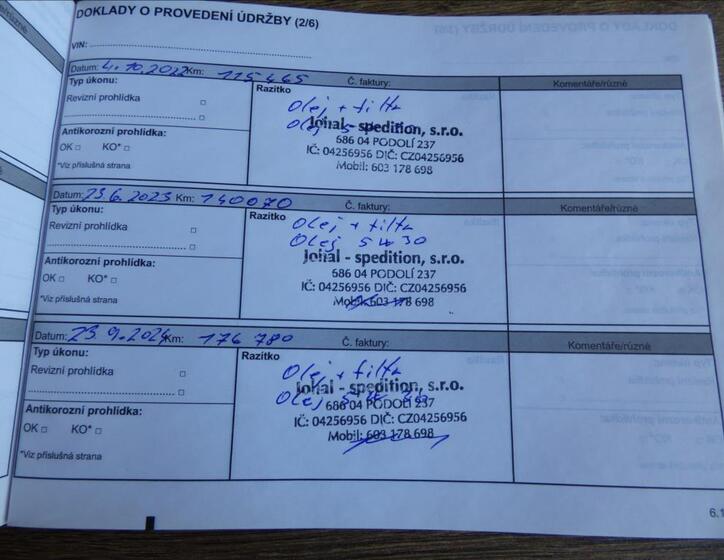 DOKLADY O PROVEDENÍ ÚDRŽBY (2/6)
VIN:
Datum: 4.10.2022 Km: 115465 Č. faktury: Komentáře/různé
Typ úkonu: Razítko
Revizní prohlídka
Olej + filtr
Olej
Johal - spedition, s.r.o.
Antikorozní prohlídka:
686 04 PODOLÍ 237
OK KO*
IČ: 04256956 DIČ: CZ04256956
*Viz příslušná strana
Mobil: 603 178 698
Datum: 23.6.2023 Km: 140070 Č. faktury: Komentáře/různé
Typ úkonu: Razítko
Revizní prohlídka
Olej + filtr
Olej 5W30
Johal - spedition, s.r.o.
Antikorozní prohlídka:
686 04 PODOLÍ 237
OK KO*
IČ: 04256956 DIČ: CZ04256956
*Viz příslušná strana
Mobil: 603 178 698
Datum: 23.9.2024 Km: 176 780 Č. faktury: Komentáře/různé
Typ úkonu: Razítko
Revizní prohlídka
Olej + filtr
Johal - spedition, s.r.o.
Olej
686 04 PODOLÍ 237
Antikorozní prohlídka:
IČ: 04256956 DIČ: CZ04256956
OK KO*
Mobil: 603 178 698
*Viz příslušná strana